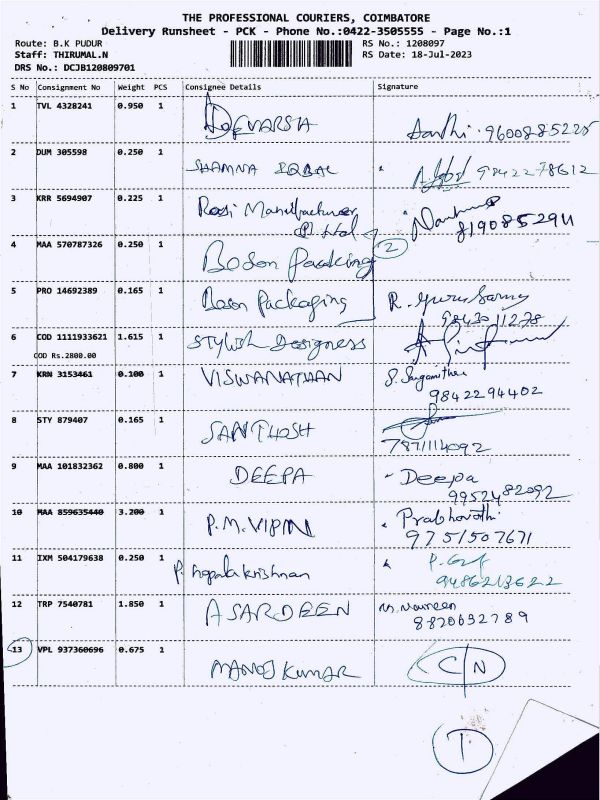 THE PROFESSIONAL COURIERS, COIMBATORE
Delivery Runsheet - PCK - Phone No.:0422-3505555 - Page No.:1
Route: B.K PUDUR RS No.: 1208097
Staff: THIRUMAL.N RS Date: 18-Jul-2023
DRS No.: DCJB120809701
S No Consignment No Weight PCS Consignee Details Signature
1 TVL 4328241 0.950 1 DEVARSTA 9600885225
2 DUM 305598 0.250 1 SHAMNA IQBAL 9842278612
3 KRR 5694907 0.225 1 Roesi Manufacturer
8190852911
4 MAA 570787326 0.250 1 Boson Packing 2
5 PRO 14692389 0.165 1 Boson Packaging R. Gurusamy
9843011278
6 COD 1111933621 1.615 1 Stylish Designess
COD Rs.2800.00
7 KRN 3153461 0.100 1 VISWANATHAN S. Sangamithra
9842294402
8 STY 879407 0.165 1 SANTHOSH
7871114092
9 MAA 101832362 0.800 1 DEEPA Deepa
9952482092
10 MAA 859635440 3.200 1 P.M.VIPIN Prabhavathi
9751507671
11 IXM 504179638 0.250 1 P. Gopalakrishnan
9486213622
12 TRP 7540781 1.850 1 ASARDEEN M. Navreen
8870692789
13 VPL 937360696 0.675 1 MANOJ KUMAR C/N
1